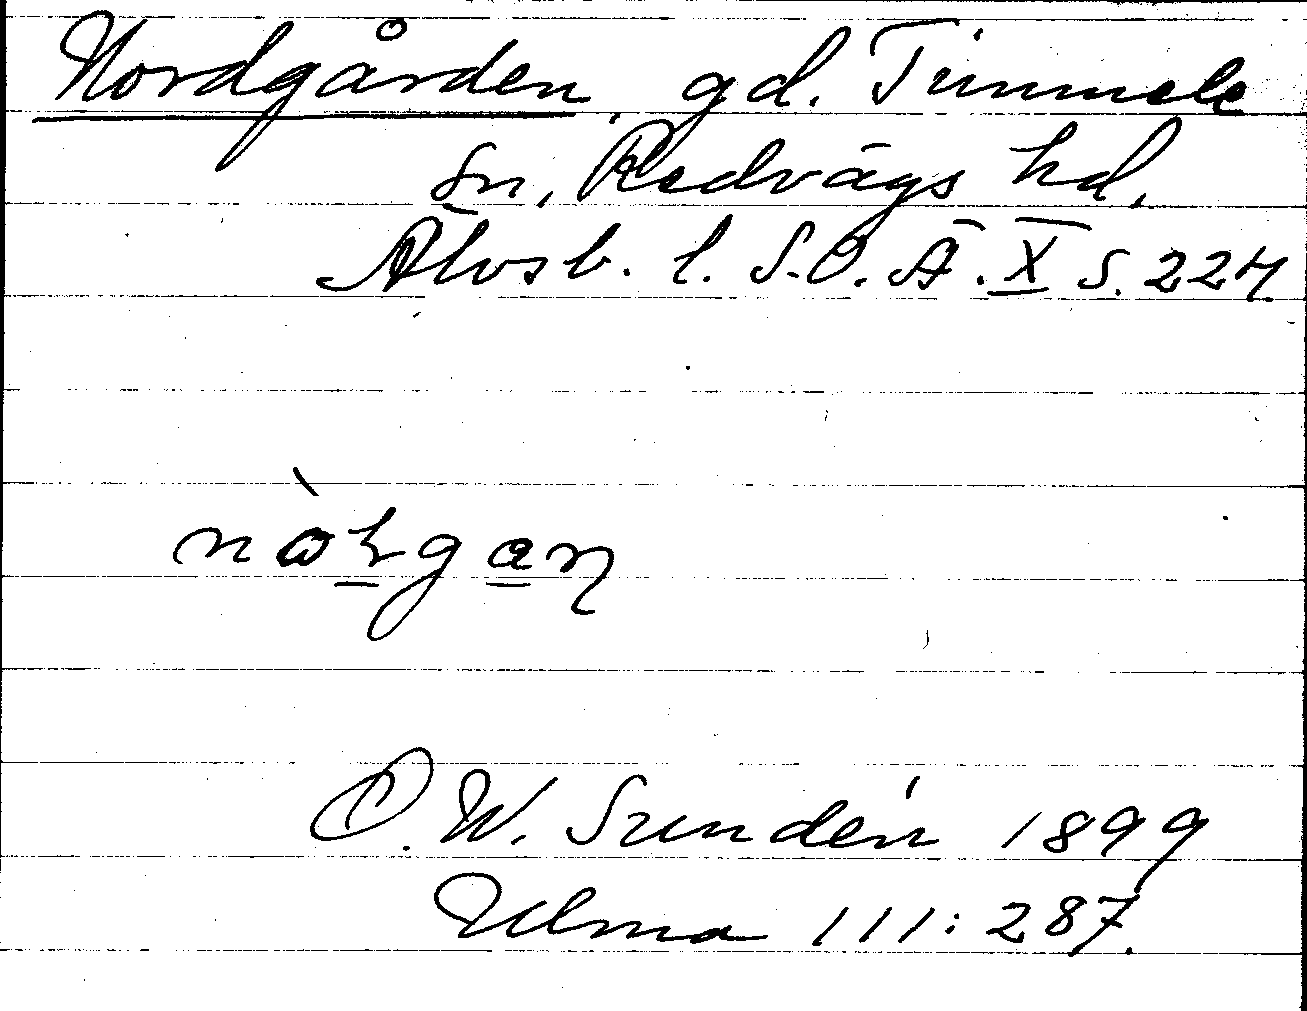 Nordgården, gd. Timmele
sn, Redvägs hd,
Älvsb. l. S.O.Ä. X s. 224
D.W. Sundén 1899
Ulma 111:287.